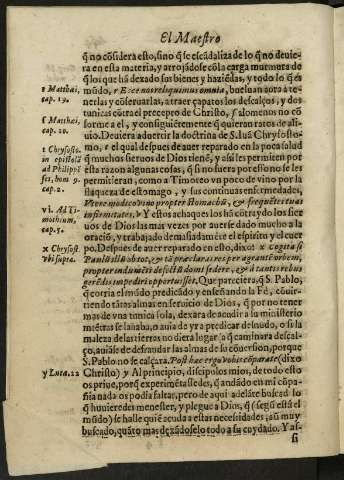 El Maestro
q̃ no cõsidera esto, sino q̃ se escãdaliza de lo q̃ no deuie
ra en esta materia, y arrojãdose cõ la carga murmura de
q̃ los que hã dexado sus bienes y haziẽdas, y todo lo q̃ es
r Matthæi, cap. 19.
mũdo, r Ecce nos reliquimus omnia, bueluan aora a te-
nerlas y cõseruarlas, a traer çapatos los descalços, y dos
tunicas cõtra el precepto de Christo, s alomenos no cõ
s Matthæi, cap. 10.
forme a el, y consiguiẽtemente q̃ quieran ratos de ali-
uio. Deuiera aduertir la doctrina de S. Iuã Chrysosto-
t Chrysosto. in epistolã ad Philippẽses, hom 9. cap. 2.
mo, t el qual despues de auer reparado en la poca salud
q̃ muchos sieruos de Dios tienẽ, y assi les permiten por
esta razon algunas cosas, q̃ si no fuera por esso no se les
permitieran, como a Timoteo vn poco de vino por la
flaqueza de estomago, y sus continuas enfermedades,
Vtere modico vino propter stomachũ, & frequẽtes tuas
vi. Ad Timotheum, cap. 5.
infirmitates, v Y estos achaques los hã cõtraydo los sier
uos de Dios las mas vezes por auerse dado mucho a la
oraciõ, y trabajado demasiadamẽte el espiritu y el cuer
x Chrysost. vbi supra.
po. Despues de auer reparado en esto, dixo: x Cogita si
Paulũ illũ obtot, & tã præclaras res per agrantẽ orbem,
propter indumẽti defectũ domi sedere, & à tantis rebus
gerẽdis impediri oportuisset. Que pareciera, q̃ S. Pablo,
q̃ corria el mũdo predicãdo y enseñando la Fè, cõuir-
tiendo tãtas almas en seruicio de Dios, q̃ por no tener
mas de vna tunica sola, dexara de acudir a su ministerio
miẽtras se lauaba, o auia de yr a predicar desnudo, o si la
maleza de las tierras no diera lugar a q̃ caminara descal-
ço, auiase de defraudar las almas de su cõuersion, porque
S. Pablo no se calçara. Post hæc ergo vobis cõparate (dixo
y Luca. 22
Christo) y Al principio, discipolos mios, de todo esto
os priuè, porq̃ experimẽtassedes, q̃ andãdo en mi cõpa-
ñia nada os podia faltar, pero de aqui adelãte buscad lo
q̃ huuieredes menester, y plegue a Dios, q̃ (segũ està el
mũdo) se halle quiẽ acuda a estas necesidades, aũ muy
buscado, quãto mas dexãdoselo todo a su cuydado. Y as-
si